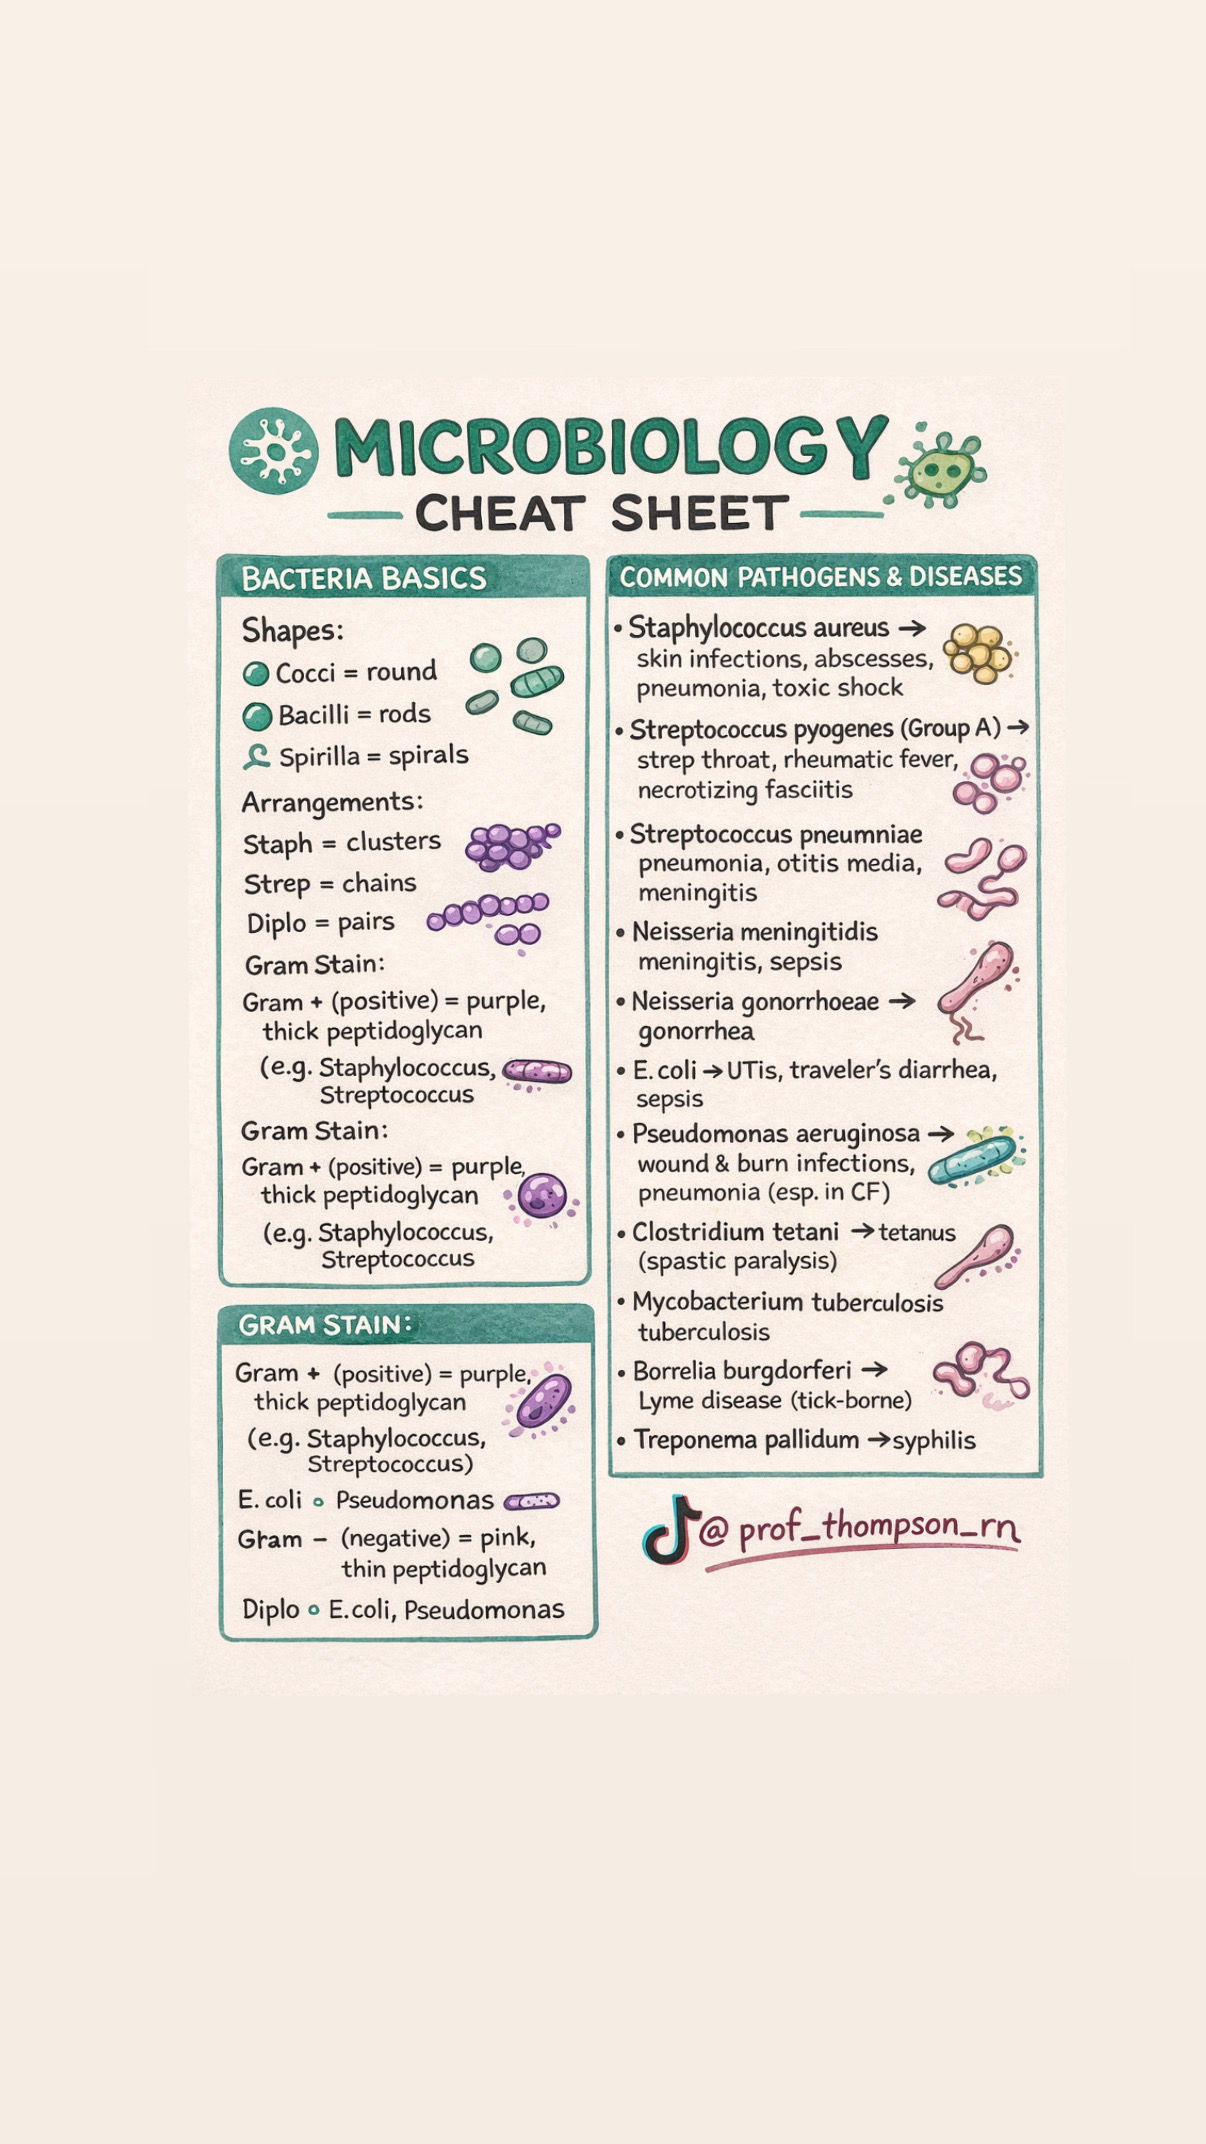 MICROBIOLOGY
CHEAT SHEET
BACTERIA BASICS
Shapes:
Cocci = round
Bacilli = rods
Spirilla = spirals
Arrangements:
Staph = clusters
Strep = chains
Diplo = pairs
Gram Stain:
Gram + (positive) = purple,
thick peptidoglycan
(e.g. Staphylococcus,
Streptococcus
Gram Stain:
Gram + (positive) = purple,
thick peptidoglycan
(e.g. Staphylococcus,
Streptococcus
GRAM STAIN:
Gram + (positive) = purple,
thick peptidoglycan
(e.g. Staphylococcus,
Streptococcus)
E. coli ∘ Pseudomonas
Gham – (negative) = pink,
thin peptidoglycan
Diplo ∘ E.coli, Pseudomonas
COMMON PATHOGENS & DISEASES
• Staphylococcus aureus →
skin infections, abscesses,
pneumonia, toxic shock
• Streptococcus pyogenes (Group A) →
strep throat, rheumatic fever,
necrotizing fasciitis
• Streptococcus pneumniae
pneumonia, otitis media,
meningitis
• Neisseria meningitidis
meningitis, sepsis
• Neisseria gonorrhoeae →
gonorrhea
• E. coli → UTis, traveler's diarrhea,
sepsis
• Pseudomonas aeruginosa →
wound & burn infections,
pneumonia (esp. in CF)
• Clostridium tetani → tetanus
(spastic paralysis)
• Mycobacterium tuberculosis
tuberculosis
• Borrelia burgdorferi →
Lyme disease (tick-borne)
• Treponema pallidum → syphilis
@ prof_thompson_rn